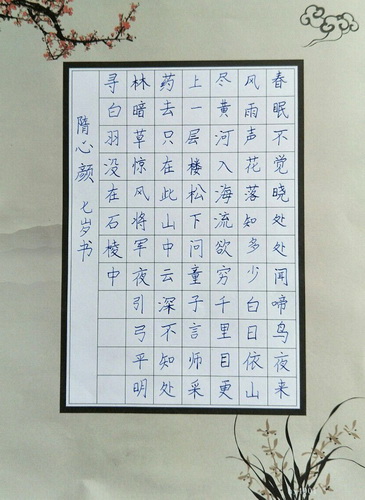 春眠不觉晓处处闻啼鸟夜来
风雨声花落知多少白日依山
尽黄河入海流欲穷千里目更
上一层楼松下问童子言师采
药去只在此山中云深不知处
林暗草惊风将军夜引弓平明
寻白羽没在石棱中
隋心颜 七岁书